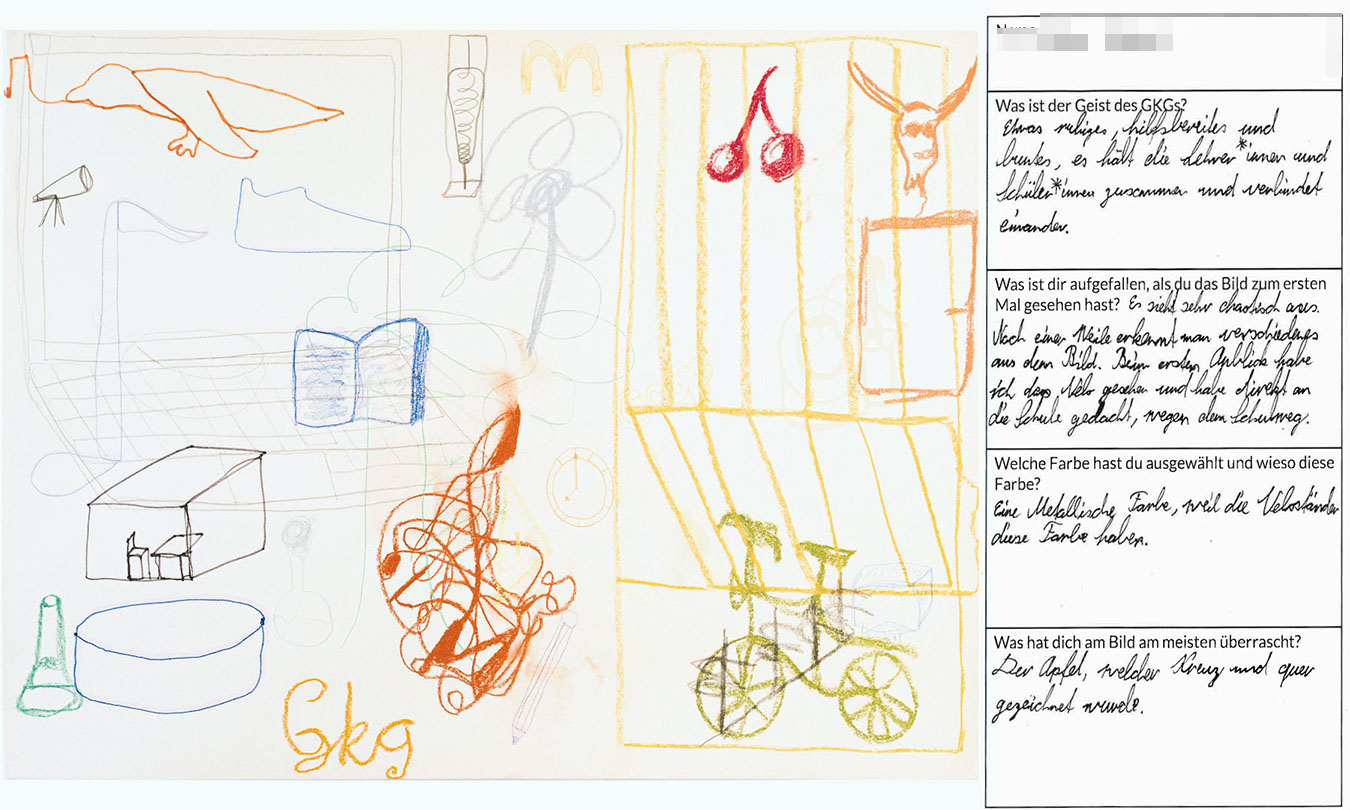 m
Gkg
Name
Was ist der Geist des GKGs?
Etwas ruhiges, hilfsbereites und
buntes, es hält die Lehrer*innen und
Schüler*innen zusammen und verbindet
einander.
Was ist dir aufgefallen, als du das Bild zum ersten
Mal gesehen hast? Es sieht sehr chaotisch aus.
Nach einer Weile erkennt man verschiedenes
aus dem Bild. Beim ersten Anblick habe
ich das Velo gesehen und habe direkt an
die Schule gedacht, wegen dem Schulweg.
Welche Farbe hast du ausgewählt und wieso diese
Farbe?
Eine Metallische Farbe, weil die Veloständer
diese Farbe haben.
Was hat dich am Bild am meisten überrascht?
Der Apfel, welcher Kreuz und quer
gezeichnet wurde.